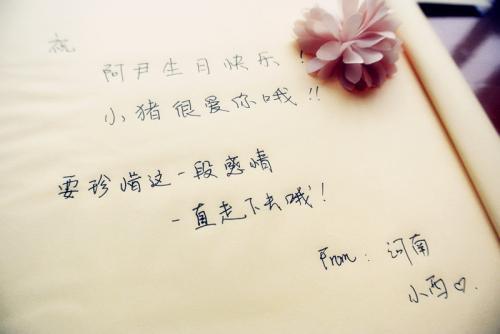 祝
阿尹生日快乐!
小猪很爱你哦!!
要珍惜这一段感情
一直走下去哦!
From: 河南
小西♡.